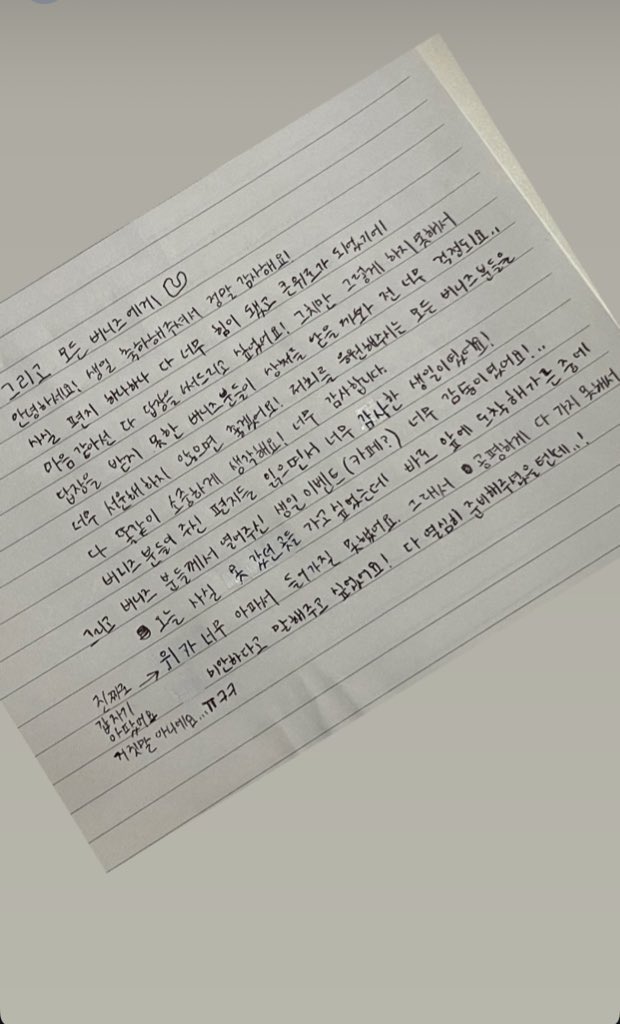 그리고 모든 버니즈에게!
안녕하세요! 생일 축하해주셔서 정말 감사해요!
사실 편지 하나하나 다 너무 힘이 됐고 큰위로가 되었기에
마음 같아선 다 답장을 써드리고 싶었어요! 그치만 그렇게 하지 못해서
답장을 받지 못한 버니즈분들이 상처를 받을 까봐 전 너무 걱정되요..
너무 서운해하지 않으면 좋겠어요! 저희를 응원해주시는 모든 버니즈분들을
다 똑같이 소중하게 생각해요! 너무 감사합니다.
버니즈 분들이 주신 편지들을 읽으면서 너무 감사한 생일이었어요!
그리고 버니즈 분들께서 열어주신 생일 이벤트(카페?) 너무 감동이었어요!..
오늘 사실 못 갔던 곳들 가고 싶었는데 바로 앞에 도착해가는 중에
위가 너무 아파서 들어가질 못했어요. 그래서 공평하게 다 가지 못해서
미안하다고 말해주고 싶었어요! 다 열심히 준비해주셨을텐데..!
진짜로 →
갑자기
아팠어요
거짓말 아니에요...ㅠㅋㅋ